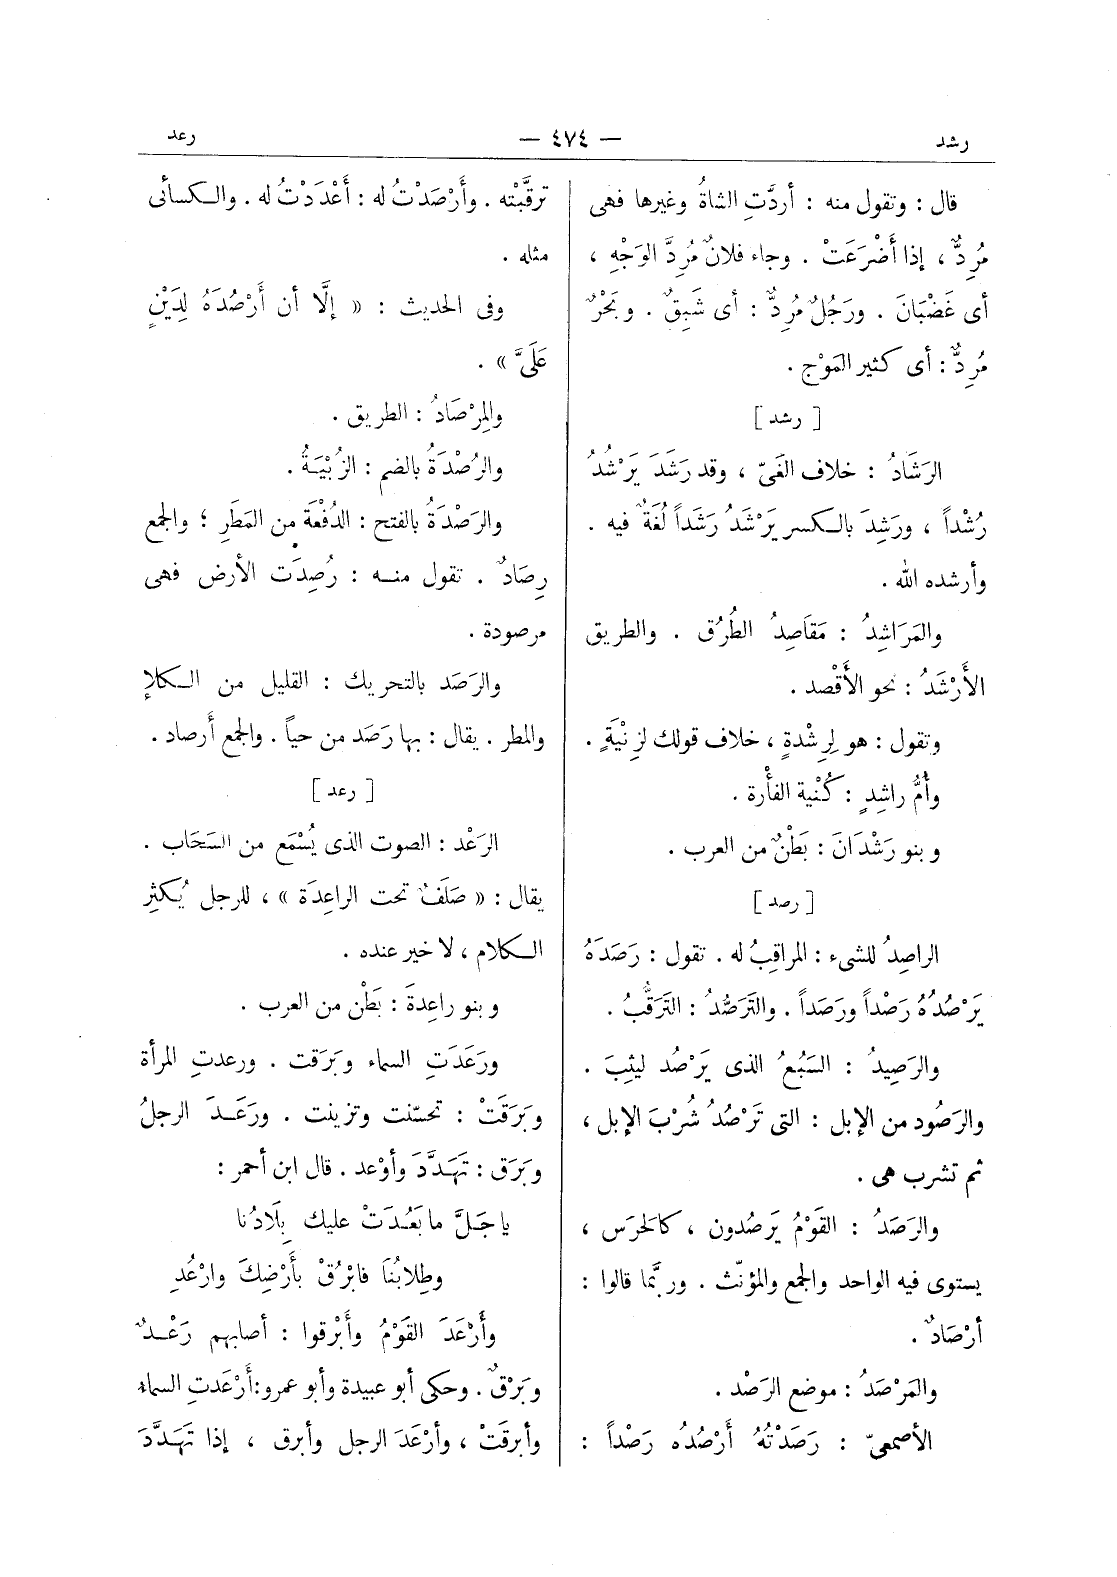 رشد — ٤٧٤ — رعد
قال : وتقول منه : أردَّتِ الشاةُ وغيرها فهى
مُرِدٌّ ، إذا أَضْرَعَتْ . وجاء فلانٌ مُرِدَّ الوَجْهِ ،
أى غَضْبَانَ . ورَجُلٌ مُرِدٌّ : أى شَبِقٌ . وبَحْرٌ
مُرِدٌّ : أى كثير المَوْج .
[ رشد ]
الرَشَادُ : خلاف الغَىّ ، وقد رَشَدَ يَرْشُدُ
رُشْداً ، ورَشِدَ بالكسر يَرْشَدُ رَشَداً لُغَةٌ فيه .
وأرشده الله .
والمَرَاشِدُ : مَقَاصِدُ الطُرُق . والطريق
الأَرْشَدُ : نحو الأَقْصد .
وتقول : هو لِرِشْدةٍ ، خلاف قولك لزِنْيَةٍ .
وأُمُّ راشِدٍ : كُنْية الفأْرة .
وبنو رَشْدَانَ : بَطْنٌ من العرب .
[ رصد ]
الراصِدُ للشىء : المراقِبُ له . تقول : رَصَدَهُ
يَرْصُدُهُ رَصْداً ورَصَداً . والتَرَصُّدُ : التَرَقُّبُ .
والرَصِيدُ : السَبُعُ الذى يَرْصُد ليثِبَ .
والرَصُود من الإبل : التى تَرْصُدُ شُرْبَ الإبل ،
ثم تشرب هى .
والرَصَدُ : القَوْمُ يَرصُدون ، كالحَرَس ،
يستوى فيه الواحد والجمع والمؤنّث . وربَّما قالوا :
أرْصَادٌ .
والمَرْصَدُ : موضع الرَصْد .
الأصمعىّ : رَصَدْتُهُ أَرْصُدُه رَصْداً :
ترقَّبْته . وأَرْصَدْتُ له : أَعْدَدْتُ له . والكسائى
مثله .
وفى الحديث : « إلَّا أن أَرْصُدَهُ لِدَيْنٍ
عَلَىَّ » .
والمِرْصَادُ : الطريق .
والرُصْدَةُ بالضم : الزُبْيَةُ .
والرَصْدَةُ بالفتح : الدُفْعَة من المَطَرِ ؛ والجمع
رِصَادٌ . تقول منه : رُصِدَت الأرض فهى
مرصودة .
والرَصَد بالتحريك : القليل من الكلإ
والمطر . يقال : بها رَصَد من حياً . والجمع أَرصاد .
[ رعد ]
الرَعْد : الصوت الذى يُسْمَع من السَحَاب .
يقال : « صَلَفٌ تحت الراعِدَة » ، للرجل يُكثِر
الكلام ، لا خير عنده .
وبنو راعِدةَ : بَطْن من العرب .
ورَعَدَتِ السماء وبَرَقت . ورعدتِ المرأة
وبَرَقَتْ : تحسّنت وتزينت . ورَعَدَ الرجلُ
وبَرَق : تَهَدَّدَ وأوْعد . قال ابن أحمر :
يا جَلَّ ما بَعُدَتْ عليك بِلَادُنا
وطِلابُنَا فابْرُقْ بأَرْضِكَ وارْعُدِ
وأَرْعَدَ القَوْمُ وأَبْرقوا : أصابهم رَعْدٌ
وبَرْقٌ . وحكى أبو عبيدة وأبو عمرو:أَرْعَدتِ السماء
وأبرقَتْ ، وأرْعَدَ الرجل وأبرق ، إذا تَهَدَّدَ